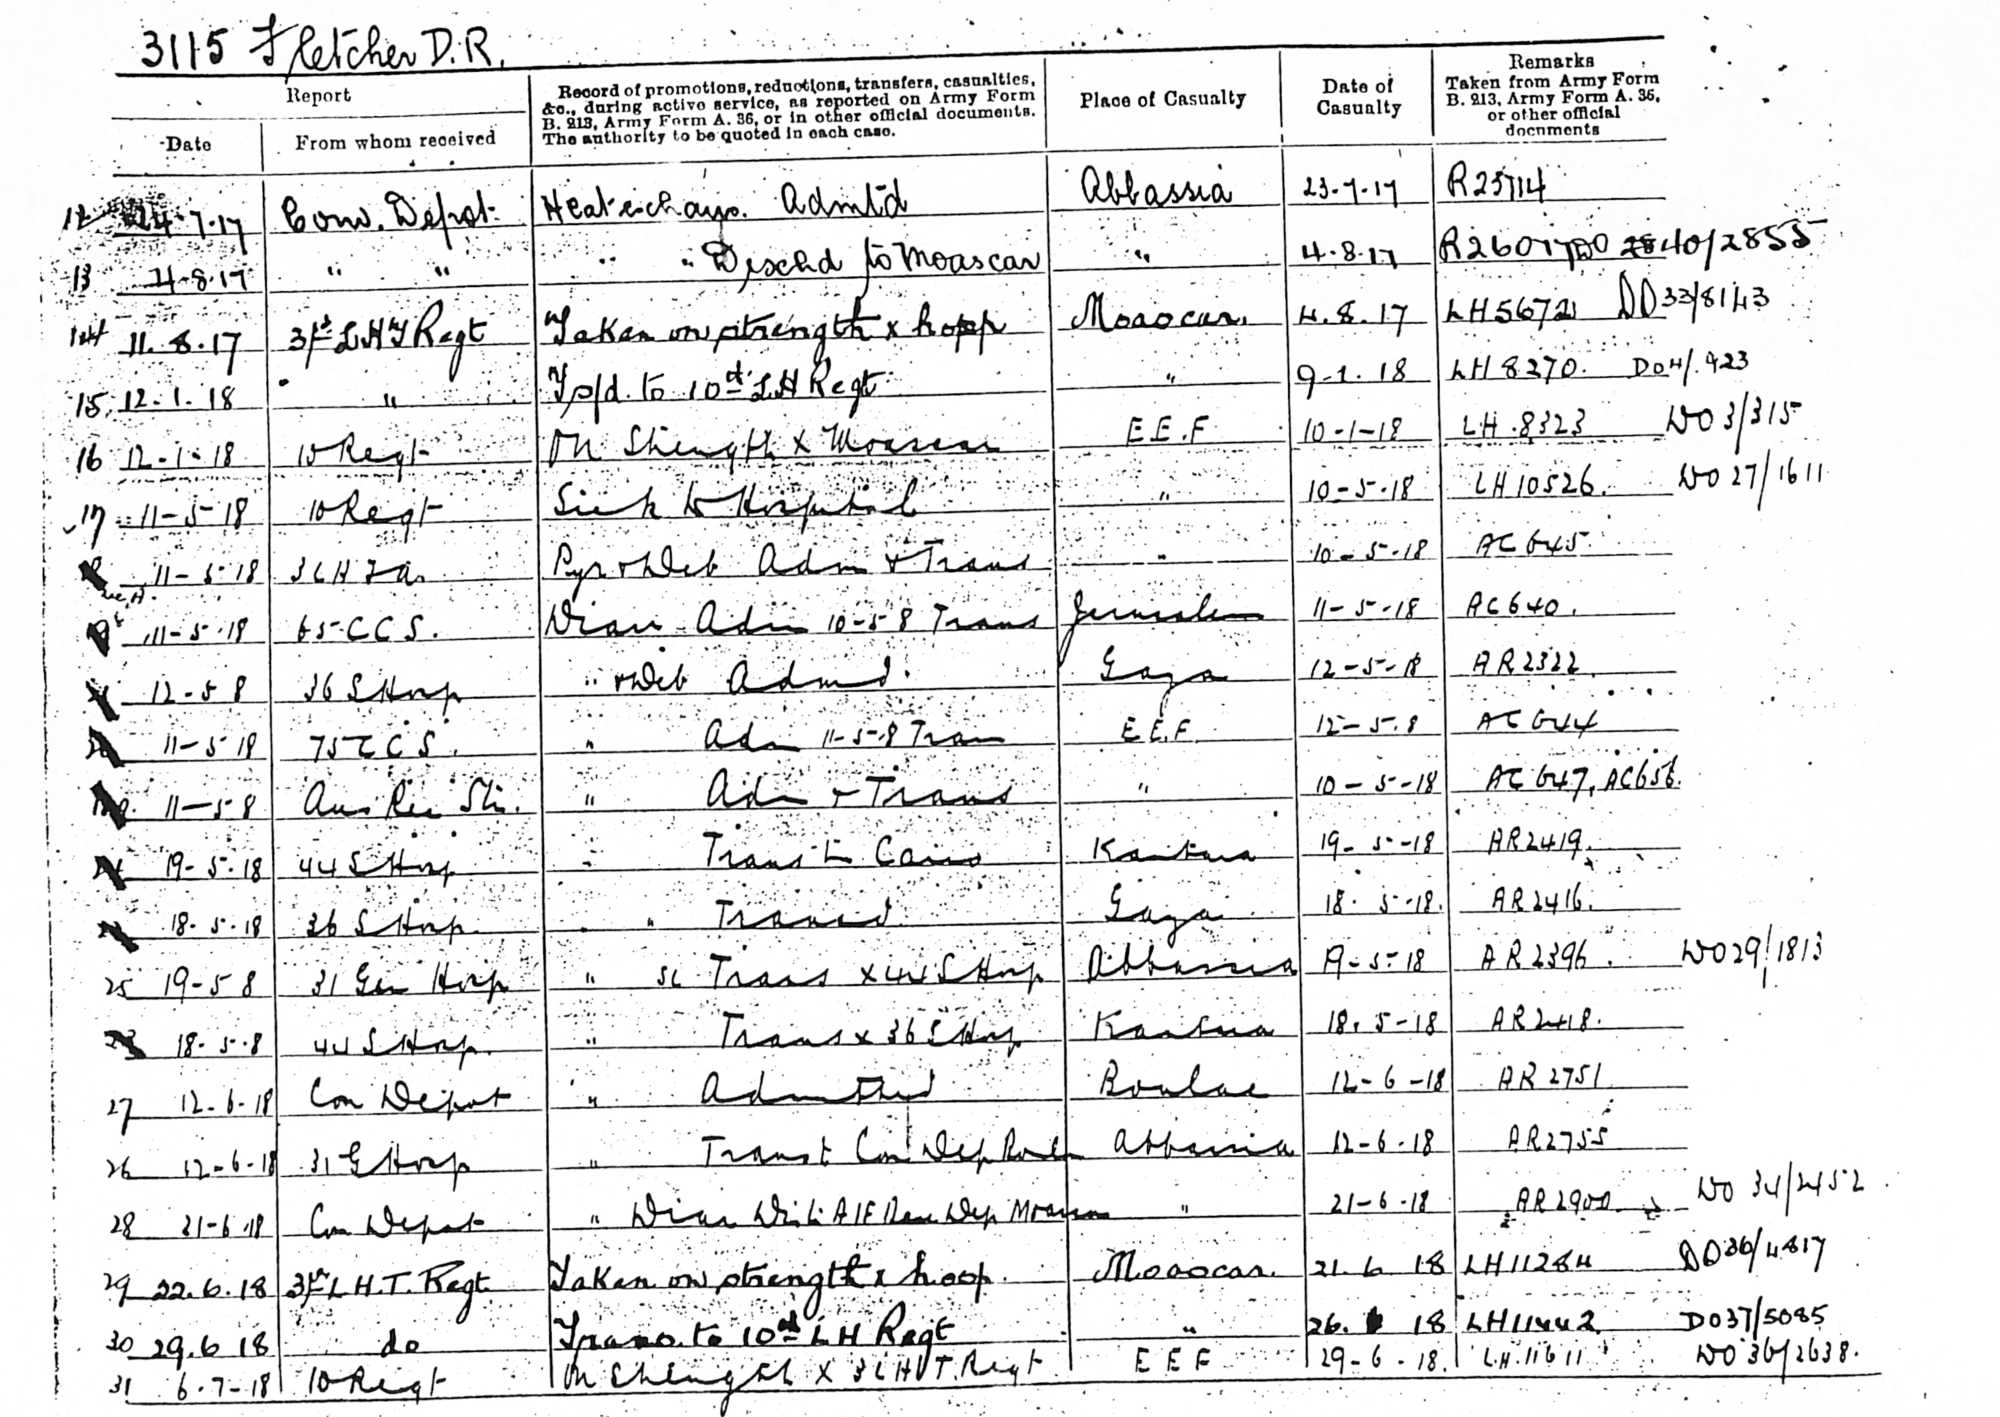 3115 Fletcher D.R.
Report
Date
From whom received
Record of promotions, reductions, transfers, casualties,
&c., during active service, as reported on Army Form
B. 213, Army Form A. 36, or in other official documents.
The authority to be quoted in each case.
Place of Casualty
Date of
Casualty
Remarks
Taken from Army Form
B. 213, Army Form A. 36,
or other official
documents
12 24.7.17 Conv. Depot. Admtd Abbassia 23.7.17 R25714
13 4.8.17 " " " " Dischd to Moascar " 4.8.17 40/2855
14 11.8.17 3rd L H T Regt Taken on strength x hosp Moascar. 4.8.17 LH5672 DO33/8143
15. 12.1.18 " Tpfd. to 10th LH Regt " 9.1.18 LH 8270. DO4/423
16 12-1-18 10 Regt On Strength x Moascar E.E.F 10-1-18 LH.8323 WO 3/315
17 11-5-18 10 Regt Sick to Hospital " 10-5-18 LH10526. WO 27/1611
11-5-18 3 LH Fa. Adm & Trans " 10-5-18 AC645.
11-5-18 65 CCS. Diarr Adm 10-5-8 Trans Jerusalem 11-5-18 AC640.
12-5-8 36 S Hosp " & Deb Admd. Gaza 12-5-18 AR2322
11-5-18 75 CCS. " Adm 11-5-8 Tran E.E.F. 12-5-8 AC644
11-5-8 Aus Rec Stn. " Adm & Trans " 10-5-18 AC647, AC656.
19-5-18 44 S Hosp " Trans to Cairo Kantara 19-5-18 AR2419.
18-5-18 36 S Hosp. " Transd Gaza 18-5-18. AR2416.
25 19-5-8 31 Gen Hosp " Trans x 44 S Hosp Abbassia 19-5-18 AR2396. WO29/1813
18-5-8 44 S Hosp. " Trans x 36 S Hosp Kantara 18.5-18 AR2418.
27 12-6-18 Con Depot " Admitted Boulac 12-6-18 AR2751
26 12-6-18 31 G Hosp " Trans t Con Dep Abbassia 12-6-18 AR2755
28 21-6-18 Con Depot " Diarr AIF Dep Moascar " 21-6-18 AR2900 WO 34/2452
29 22.6.18 3rd L.H.T. Regt Taken on strength x hosp. Moascar. 21.6 18 LH11284 DO36/4817
30 29.6 18 do Trans. to 10th LH Regt " 26. 6 18 LH11442 DO37/5085
31 6.7-18 10 Regt On Strength x 3 LHT Regt E E F 29-6-18. LH.11611 WO 36/2638.